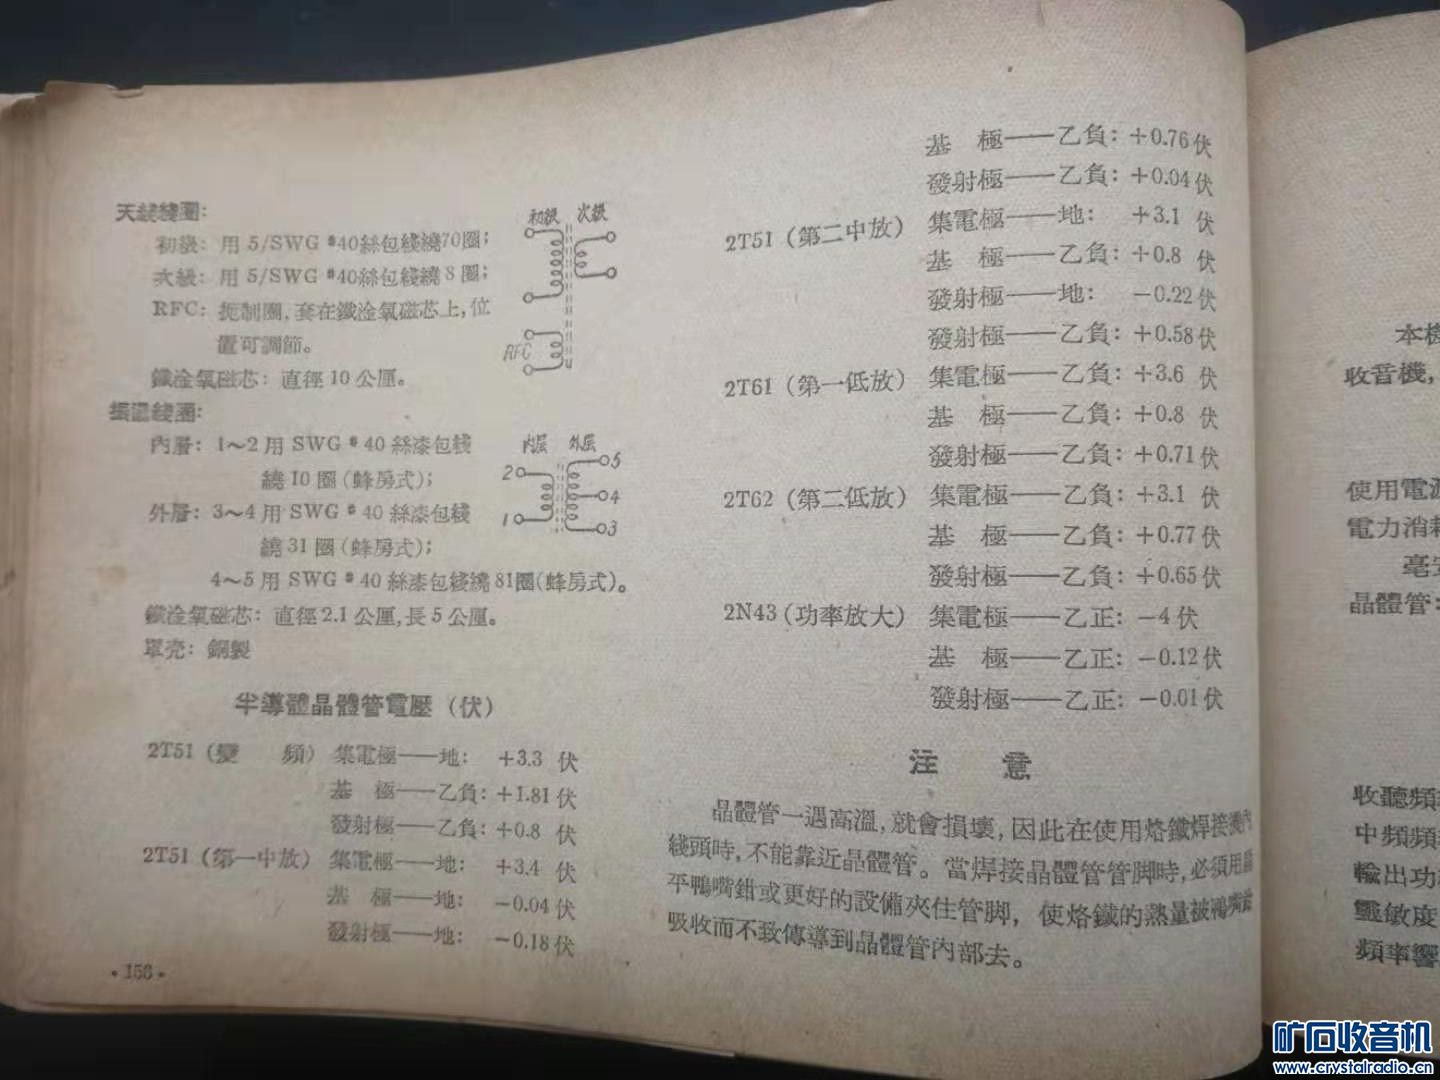 天綫綫圈:
初級: 用 5/SWG #40絲包綫繞70圈;
次級: 用 5/SWG #40絲包綫繞 8 圈;
RFC: 扼制圈,套在鐵淦氧磁芯上,位
置可調節。
鐵淦氧磁芯: 直徑 10 公厘。
初級 次級
RFC
振盪綫圈:
內層: 1～2 用 SWG # 40 絲漆包綫
繞 10 圈(蜂房式);
外層: 3～4 用 SWG # 40 絲漆包綫
繞 31 圈(蜂房式);
4～5 用 SWG # 40 絲漆包綫繞 81圈(蜂房式)。
鐵淦氧磁芯: 直徑2.1 公厘,長 5 公厘。
罩壳: 銅製
内层 外层
2
1
5
4
3
半導體晶體管電壓 (伏)
2T51 (變 頻) 集電極——地: +3.3 伏
基 極——乙負: +1.81伏
發射極——乙負: +0.8 伏
2T51 (第一中放) 集電極——地: +3.4 伏
基 極——地: -0.04伏
發射極——地: -0.18伏
• 158 •
基 極——乙負: +0.76伏
發射極——乙負: +0.04伏
2T51 (第二中放) 集電極——地: +3.1 伏
基 極——乙負: +0.8 伏
發射極——地: -0.22伏
發射極——乙負: +0.58伏
2T61 (第一低放) 集電極——乙負: +3.6 伏
基 極——乙負: +0.8 伏
發射極——乙負: +0.71伏
2T62 (第二低放) 集電極——乙負: +3.1 伏
基 極——乙負: +0.77伏
發射極——乙負: +0.65伏
2N43 (功率放大) 集電極——乙正: -4伏
基 極——乙正: -0.12伏
發射極——乙正: -0.01伏
注 意
晶體管一遇高溫,就會損壞,因此在使用烙鐵焊接機內
綫頭時,不能靠近晶體管。當焊接晶體管管脚時,必須用
平鴨嘴鉗或更好的設備夾住管脚,使烙鐵的熱量被鴨嘴鉗
吸收而不致傳導到晶體管內部去。
本機
收音機,
使用電源
電力消耗
毫安
晶體管:
收聽頻率
中頻頻率
輸出功率
靈敏度
頻率響
矿石收音机
www.crystalradio.cn